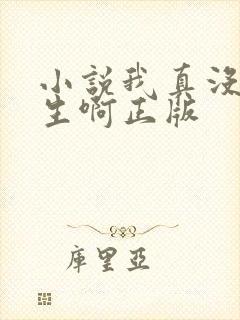 小說我真沒
生啊正版
庫里亞